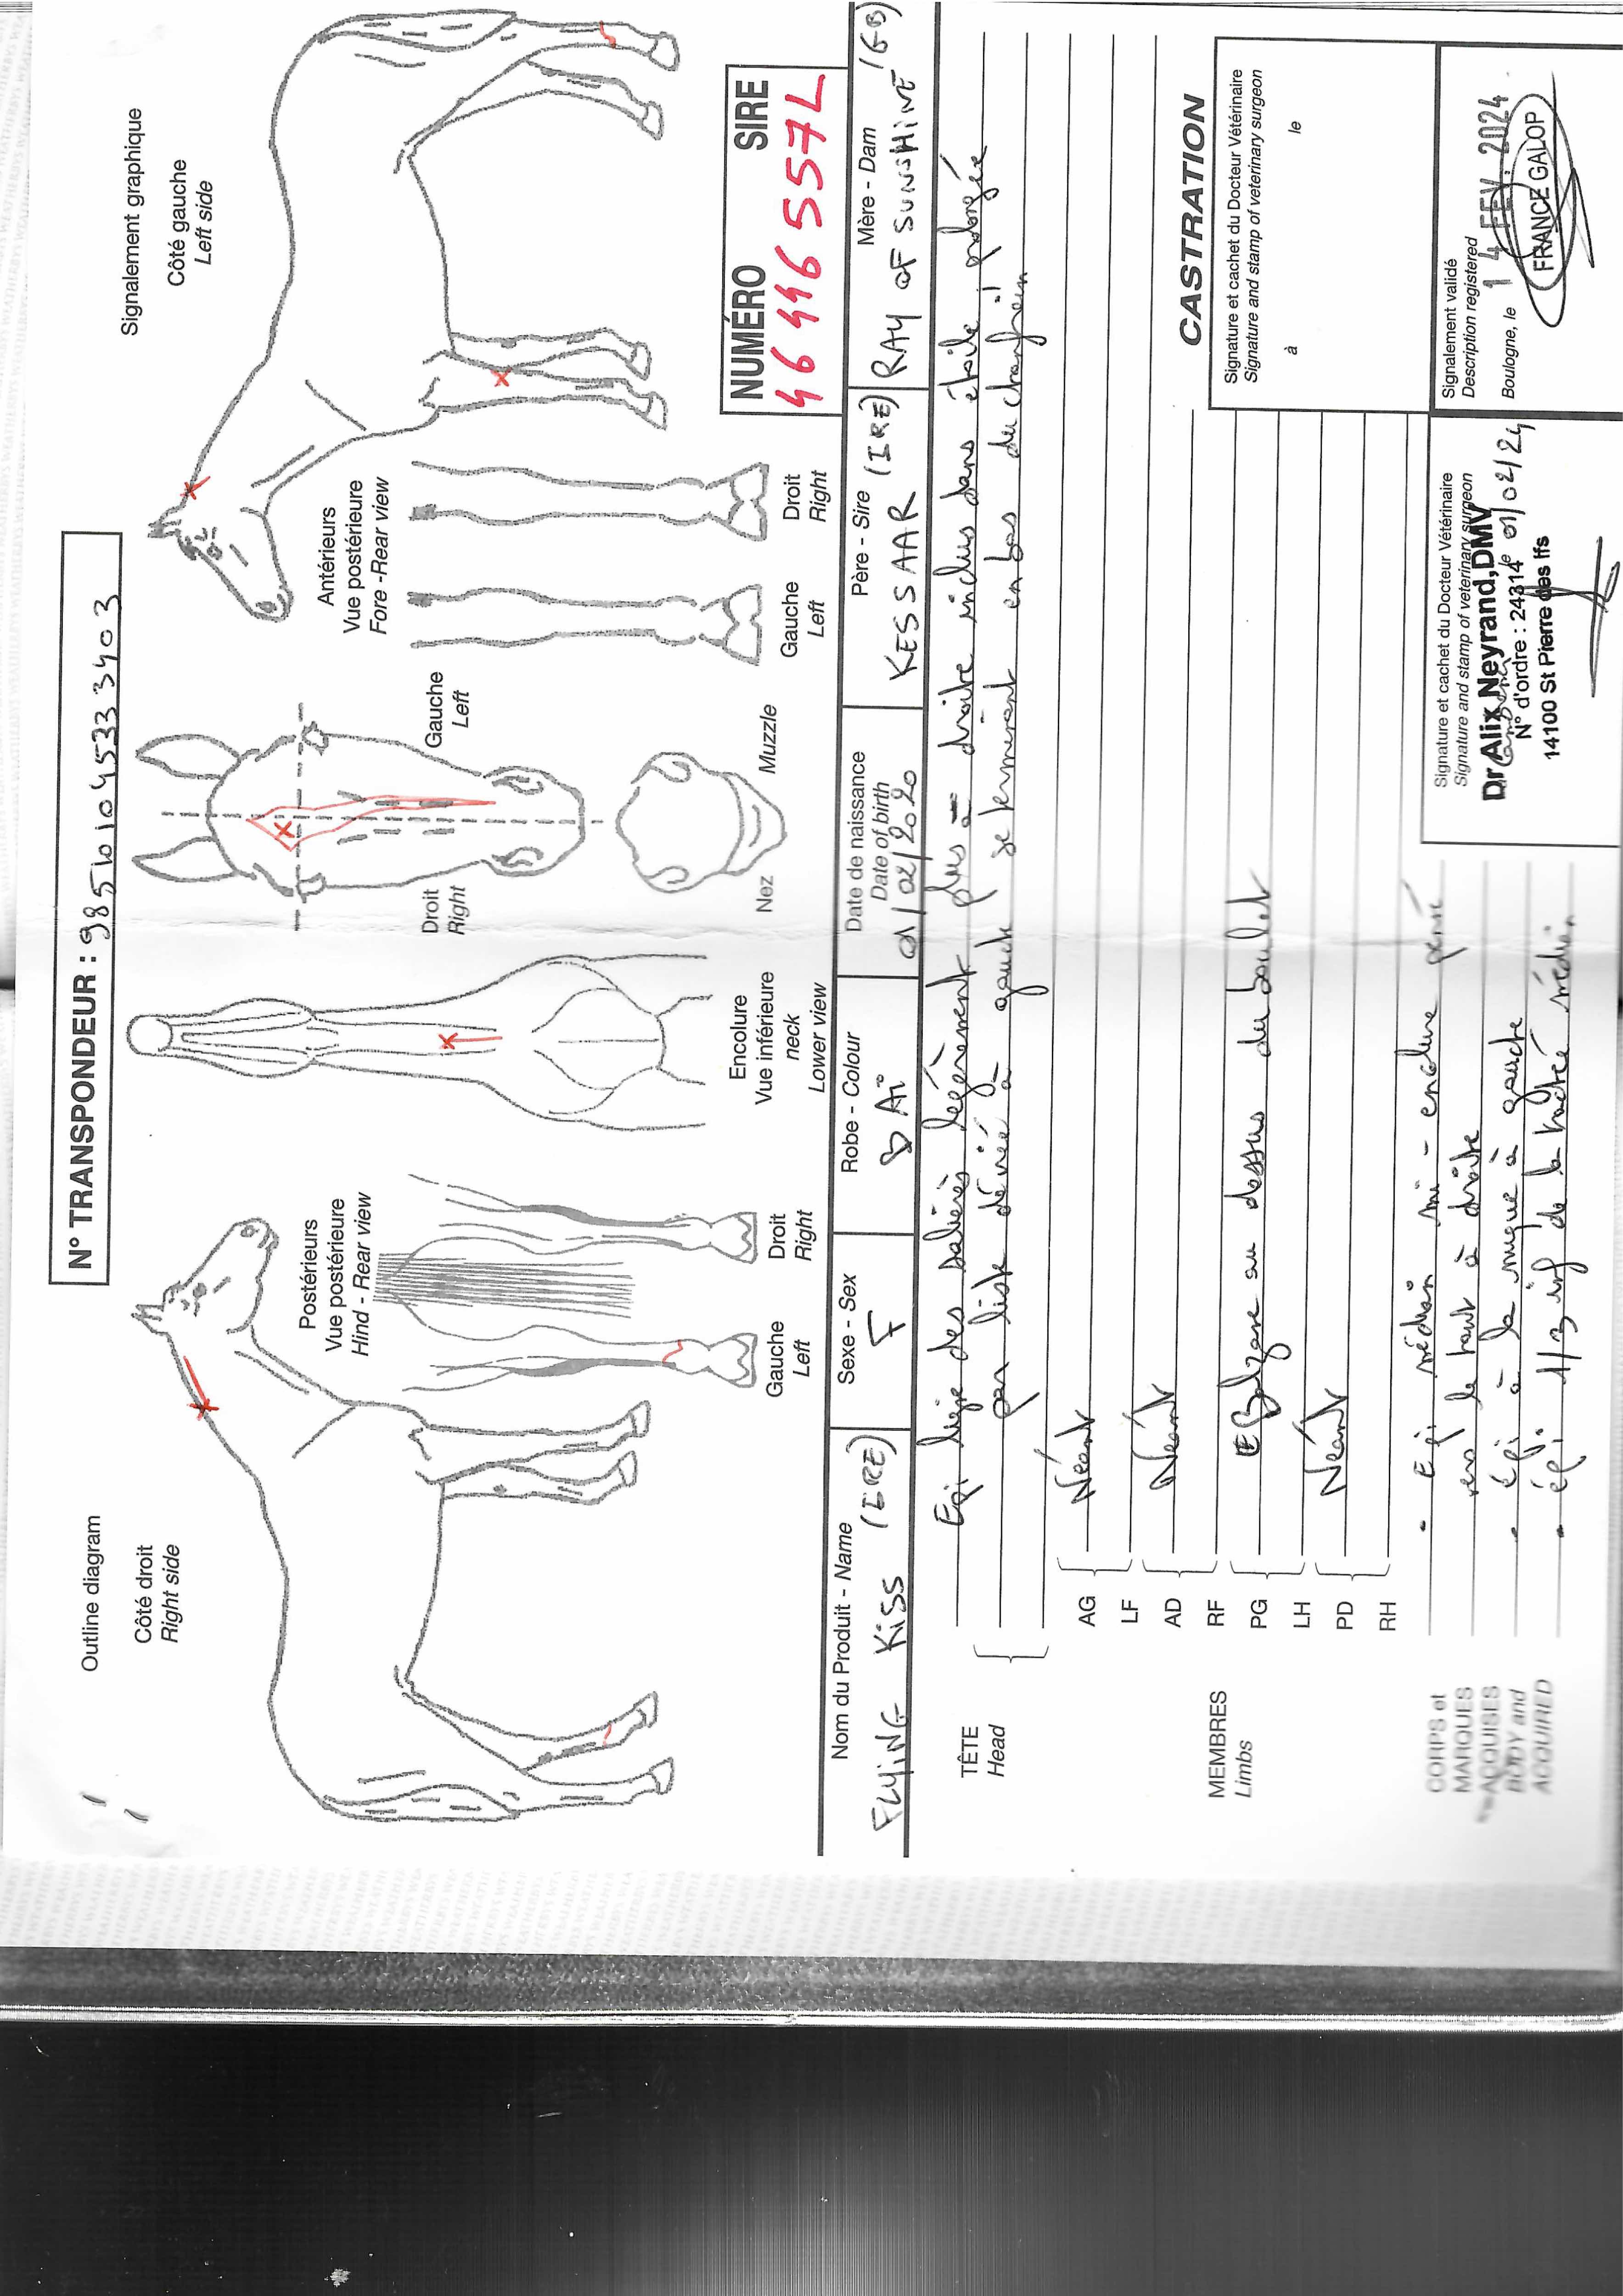 N° TRANSPONDEUR : 985101045333403
Outline diagram
Signalement graphique
Côté droit
Right side
Côté gauche
Left side
Postérieurs
Vue postérieure
Hind - Rear view
Gauche
Left
Droit
Right
Encolure
Vue inférieure
neck
Lower view
Droit
Right
Gauche
Left
Nez
Muzzle
Antérieurs
Vue postérieure
Fore - Rear view
Gauche
Left
Droit
Right
NUMÉRO SIRE
46446557L
Nom du Produit - Name
FLYING KISS (IRE)
Sexe - Sex
F
Robe - Colour
BAI
Date de naissance
Date of birth
01/02/2020
Père - Sire
KESSAAR (IRE)
Mère - Dam
RAY OF SUNSHINE (GB)
TÊTE
Head
Epi ligne des salières légèrement plus à droite inclus dans étoile prolongée
par liste déviée à gauche se terminant en bas du chanfrein
MEMBRES
Limbs
AG
LF
Néant
AD
RF
Néant
PG
LH
Balzane au dessus du boulet
PD
RH
Néant
CORPS et
MARQUES
ACQUISES
BODY and
ACQUIRED
- Epi médian mi-encolure penné
vers le haut à droite
- épi à la nuque à gauche
- épi 1/3 inf de la trachée médian
CASTRATION
Signature et cachet du Docteur Vétérinaire
Signature and stamp of veterinary surgeon
à le
Signature et cachet du Docteur Vétérinaire
Signature and stamp of veterinary surgeon
Dr Alix Neyrand, DMV
N° d'ordre : 24314
le 01/02/24
14100 St Pierre des Ifs
Signalement validé
Description registered
Boulogne, le 14 FEV. 2024
FRANCE GALOP